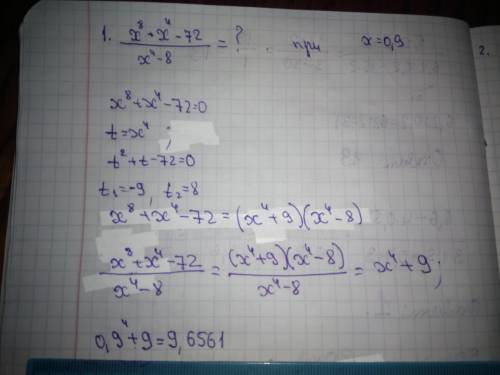 1. (x⁸+x⁴-72)/(x⁴-8) = ? . при x=0,9
2.
x⁸+x⁴-72=0
t=x⁴ ;
t²+t-72=0
t₁=-9, t₂=8
x⁸+x⁴-72=(x⁴+9)(x⁴-8)
(x⁸+x⁴-72)/(x⁴-8) = ((x⁴+9)(x⁴-8))/(x⁴-8) = x⁴+9;
0,9⁴+9=9,6561